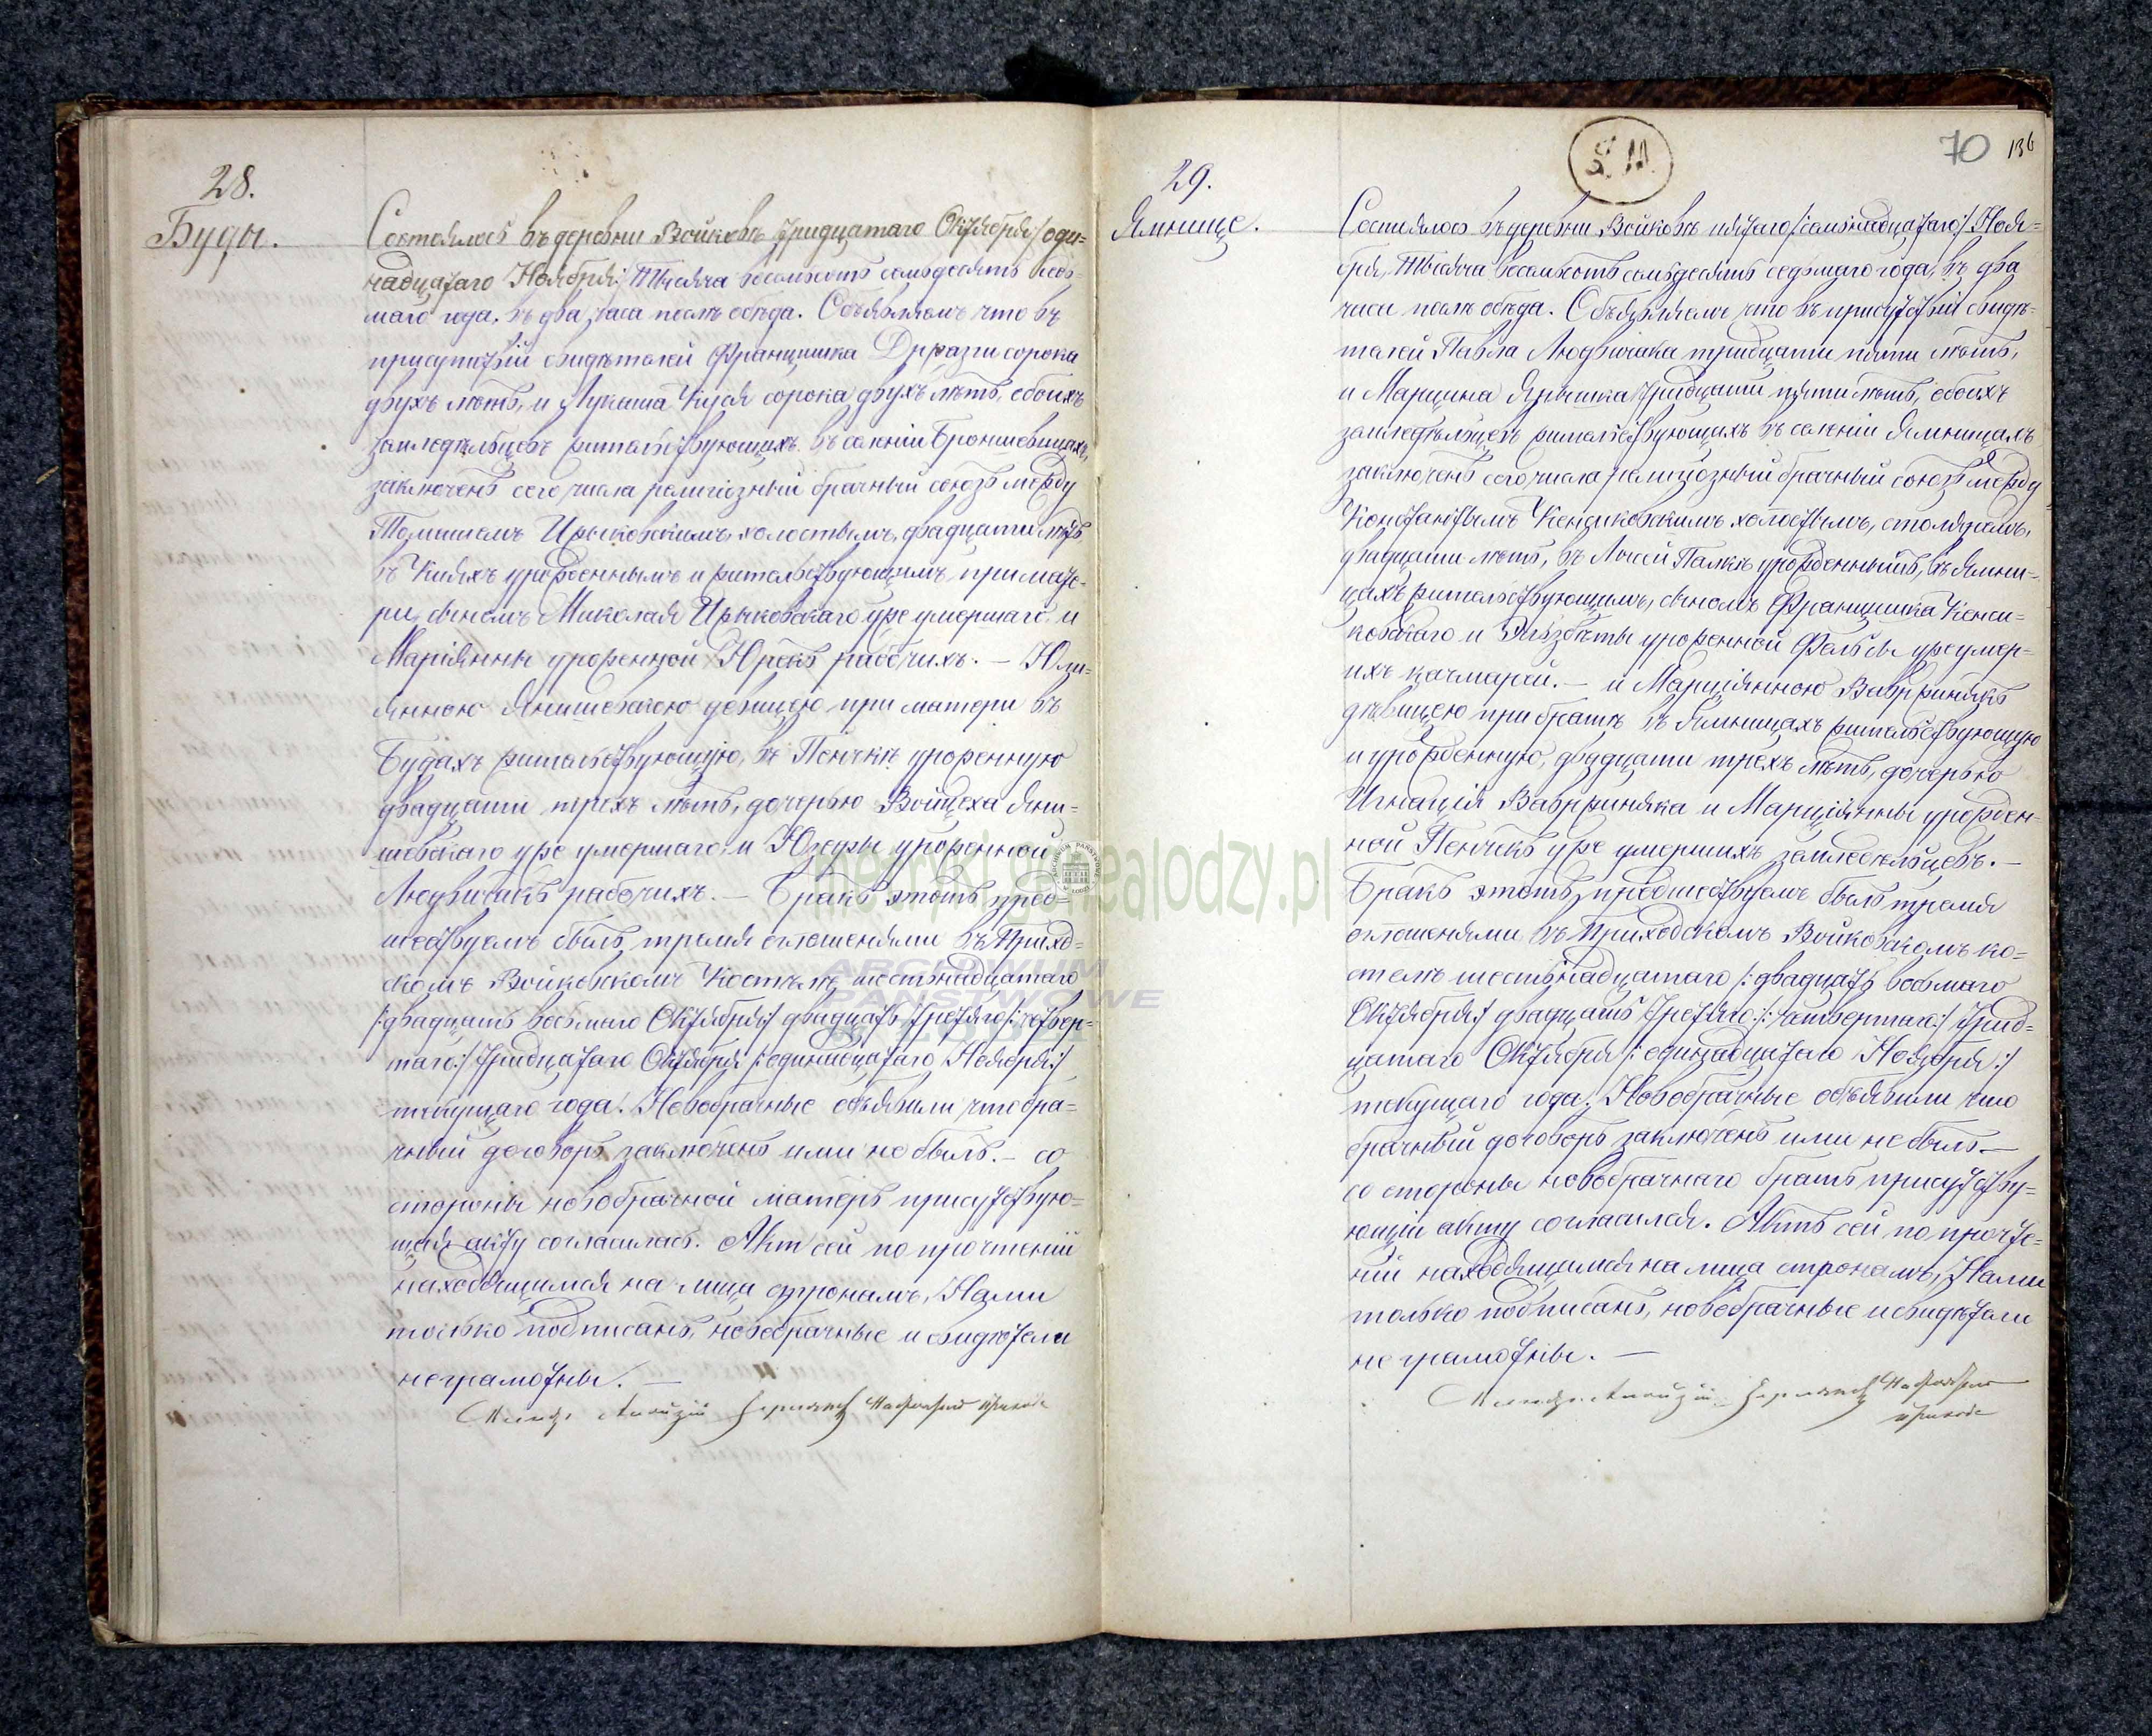 28.
Буды.
Состоялось въ деревни Войковѣ тридцатаго Октября /: оди=
надцатаго Ноября :/ тысяча восемьсотъ семьдесятъ седь=
маго года, въ два часа послѣ обѣда. Объявляемъ что въ
присутствіи свидѣтелей Францишка сорока
двухъ лѣтъ, и Лукаша сорока двухъ лѣтъ, обоихъ
земледѣльцевъ жительствующихъ въ селеніи
заключенъ сего числа религіозный брачный союзъ между
Томашемъ холостымъ, двадцати лѣтъ
въ урожденнымъ и жительствующимъ при мате=
ри, сыномъ Миколая уже умершаго и
Маріянны урожденной рабочихъ. — Юли=
янною Янишевскою дѣвицею при матери въ
Будахъ жительствующую, въ урожденную
двадцати трехъ лѣтъ, дочерью Войцеха Яни=
шевскаго уже умершаго, и Юзефы урожденной
Людвичакъ рабочихъ. — Бракъ этотъ пред=
шествуемъ былъ тремя оглашенями въ Приход=
скомъ Войковскомъ Костелѣ шестьнадцатаго
/: двадцать восьмаго Октября :/ двадцать третьяго /: четвер=
таго :/ тридцатаго Октября /: одинадцатаго Ноября :/
текущаго года. Новобрачные объявили что бра=
чный договоръ заключенъ ими не былъ. — со
стороны новобрачной матерь присутствую=
щая акту согласилась. Актъ сей по прочтеніи
находящимся на лица сторонамъ, Нами
только подписанъ, новобрачные и свидѣтели
неграмотны. —
S. M.
70 136
29.
Ямнице.
Состоялось въ деревни Войковѣ пятаго /: семьнадцатаго :/ Ноя=
бря, тысяча восемьсотъ семьдесятъ седьмаго года, въ два
часа послѣ обѣда. Объявляемъ что въ присутствіи свидѣ=
телей Павла Людвичака тридцати пяти лѣтъ,
и Марцина тридцати пяти лѣтъ, обоихъ
земледѣльцевъ жительствующихъ въ селеніи Ямницахъ
заключенъ сего числа религіозный брачный союзъ между
холостымъ, столяромъ,
двадцати лѣтъ, въ урожденнымъ, въ Ямни=
цахъ жительствующимъ, сыномъ Францишка
и Элізбеты урожденной уже умер=
ихъ качмарей. — и Марціянною Вавржинякъ
дѣвицею при братѣ въ Ямницахъ жительствующую
и урожденную, двадцати трехъ лѣтъ, дочерью
Игнація Вавржиняка и Марціянны урожден=
ной уже умершихъ земледѣльцевъ. —
Бракъ этотъ предшествуемъ былъ тремя
оглашенями въ Приходскомъ Войковскомъ ко=
стелѣ шестьнадцатаго /: двадцать восьмаго
Октября :/ двадцать третьяго /: четвертаго :/ трид=
цатаго Октября /: одинадцатаго Ноября :/
текущаго года. Новобрачные объявили что
брачный договоръ заключенъ ими не былъ. —
со стороны новобрачнаго братъ присутству=
ющій акту согласился. Актъ сей по прочте=
ніи находящимся на лица сторонамъ, Нами
только подписанъ, новобрачные и свидѣтели
неграмотны. —
metryki.genealodzy.pl
ARCHIWUM
PAŃSTWOWE
W ŁODZI